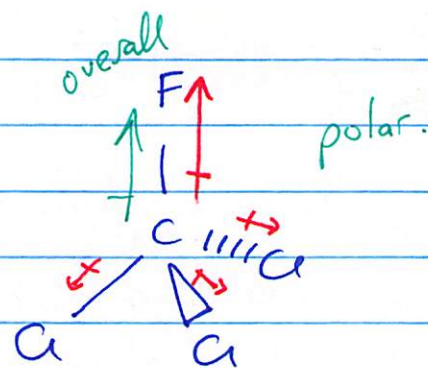 overall
F
polar.
C
Cl
Cl
Cl